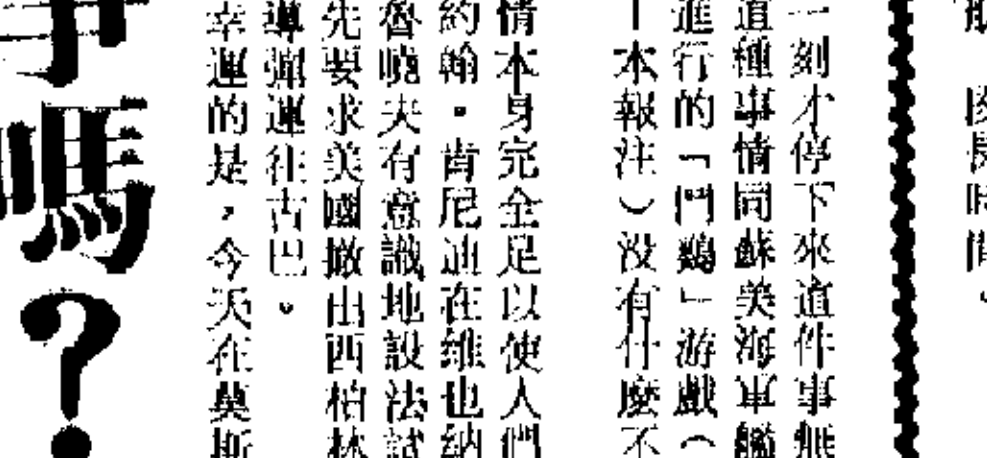 肉長時間。
一刻才停下來這件事無
這種事情同蘇美海軍艦
進行的「鬥鷄」游戲(
—本報注)没有什麼不
情本身完全足以使人們
約翰·肯尼迪在維也納
魯曉夫有意識地設法試
先要求美國撤出西柏林
導彈運往古巴。
幸運的是,今天在莫斯
事嗎?